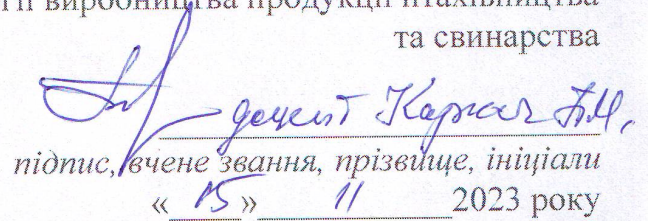 виробництва продукції птахівництва
та свинарства
доцент Каркач П.М.
підпис, вчене звання, прізвище, ініціали
«15» 11 2023 року